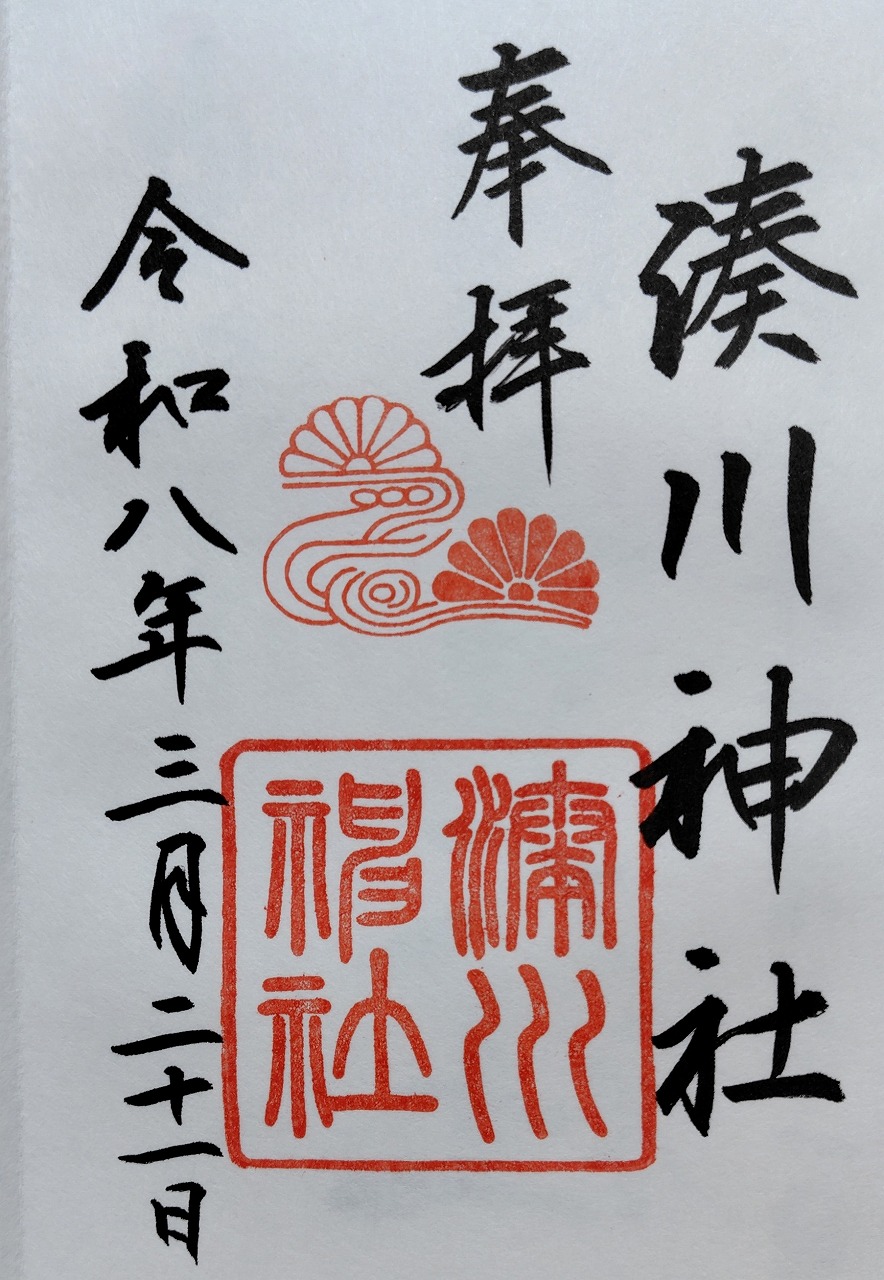 湊川神社
奉拝
湊川
神社
令和八年三月二十一日